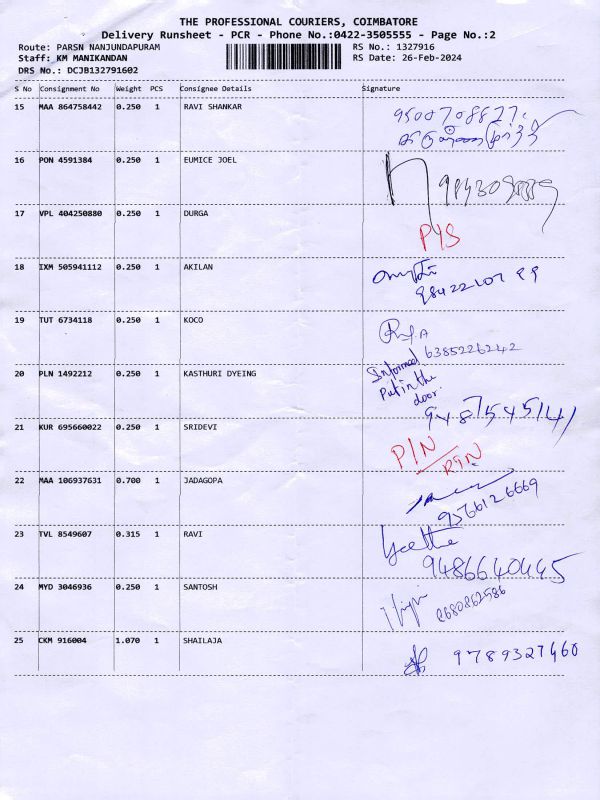 THE PROFESSIONAL COURIERS, COIMBATORE
Delivery Runsheet - PCR - Phone No.:0422-3505555 - Page No.:2
Route: PARSN NANJUNDAPURAM RS No.: 1327916
Staff: KM MANIKANDAN RS Date: 26-Feb-2024
DRS No.: DCJB132791602
S No Consignment No Weight PCS Consignee Details Signature
15 MAA 864758442 0.250 1 RAVI SHANKAR
9500708877
16 PON 4591384 0.250 1 EUMICE JOEL
17 VPL 404250880 0.250 1 DURGA
P/S
18 IXM 505941112 0.250 1 AKILAN
98422107 99
19 TUT 6734118 0.250 1 KOCO
6385226242
20 PLN 1492212 0.250 1 KASTHURI DYEING
Informed
Put in the
door.
9487545141
21 KUR 695660022 0.250 1 SRIDEVI
P/N
RTN
22 MAA 106937631 0.700 1 JADAGOPA
9566126669
23 TVL 8549607 0.315 1 RAVI
Geetha
9486640445
24 MYD 3046936 0.250 1 SANTOSH
8680862586
25 CKM 916004 1.070 1 SHAILAJA
9789327460